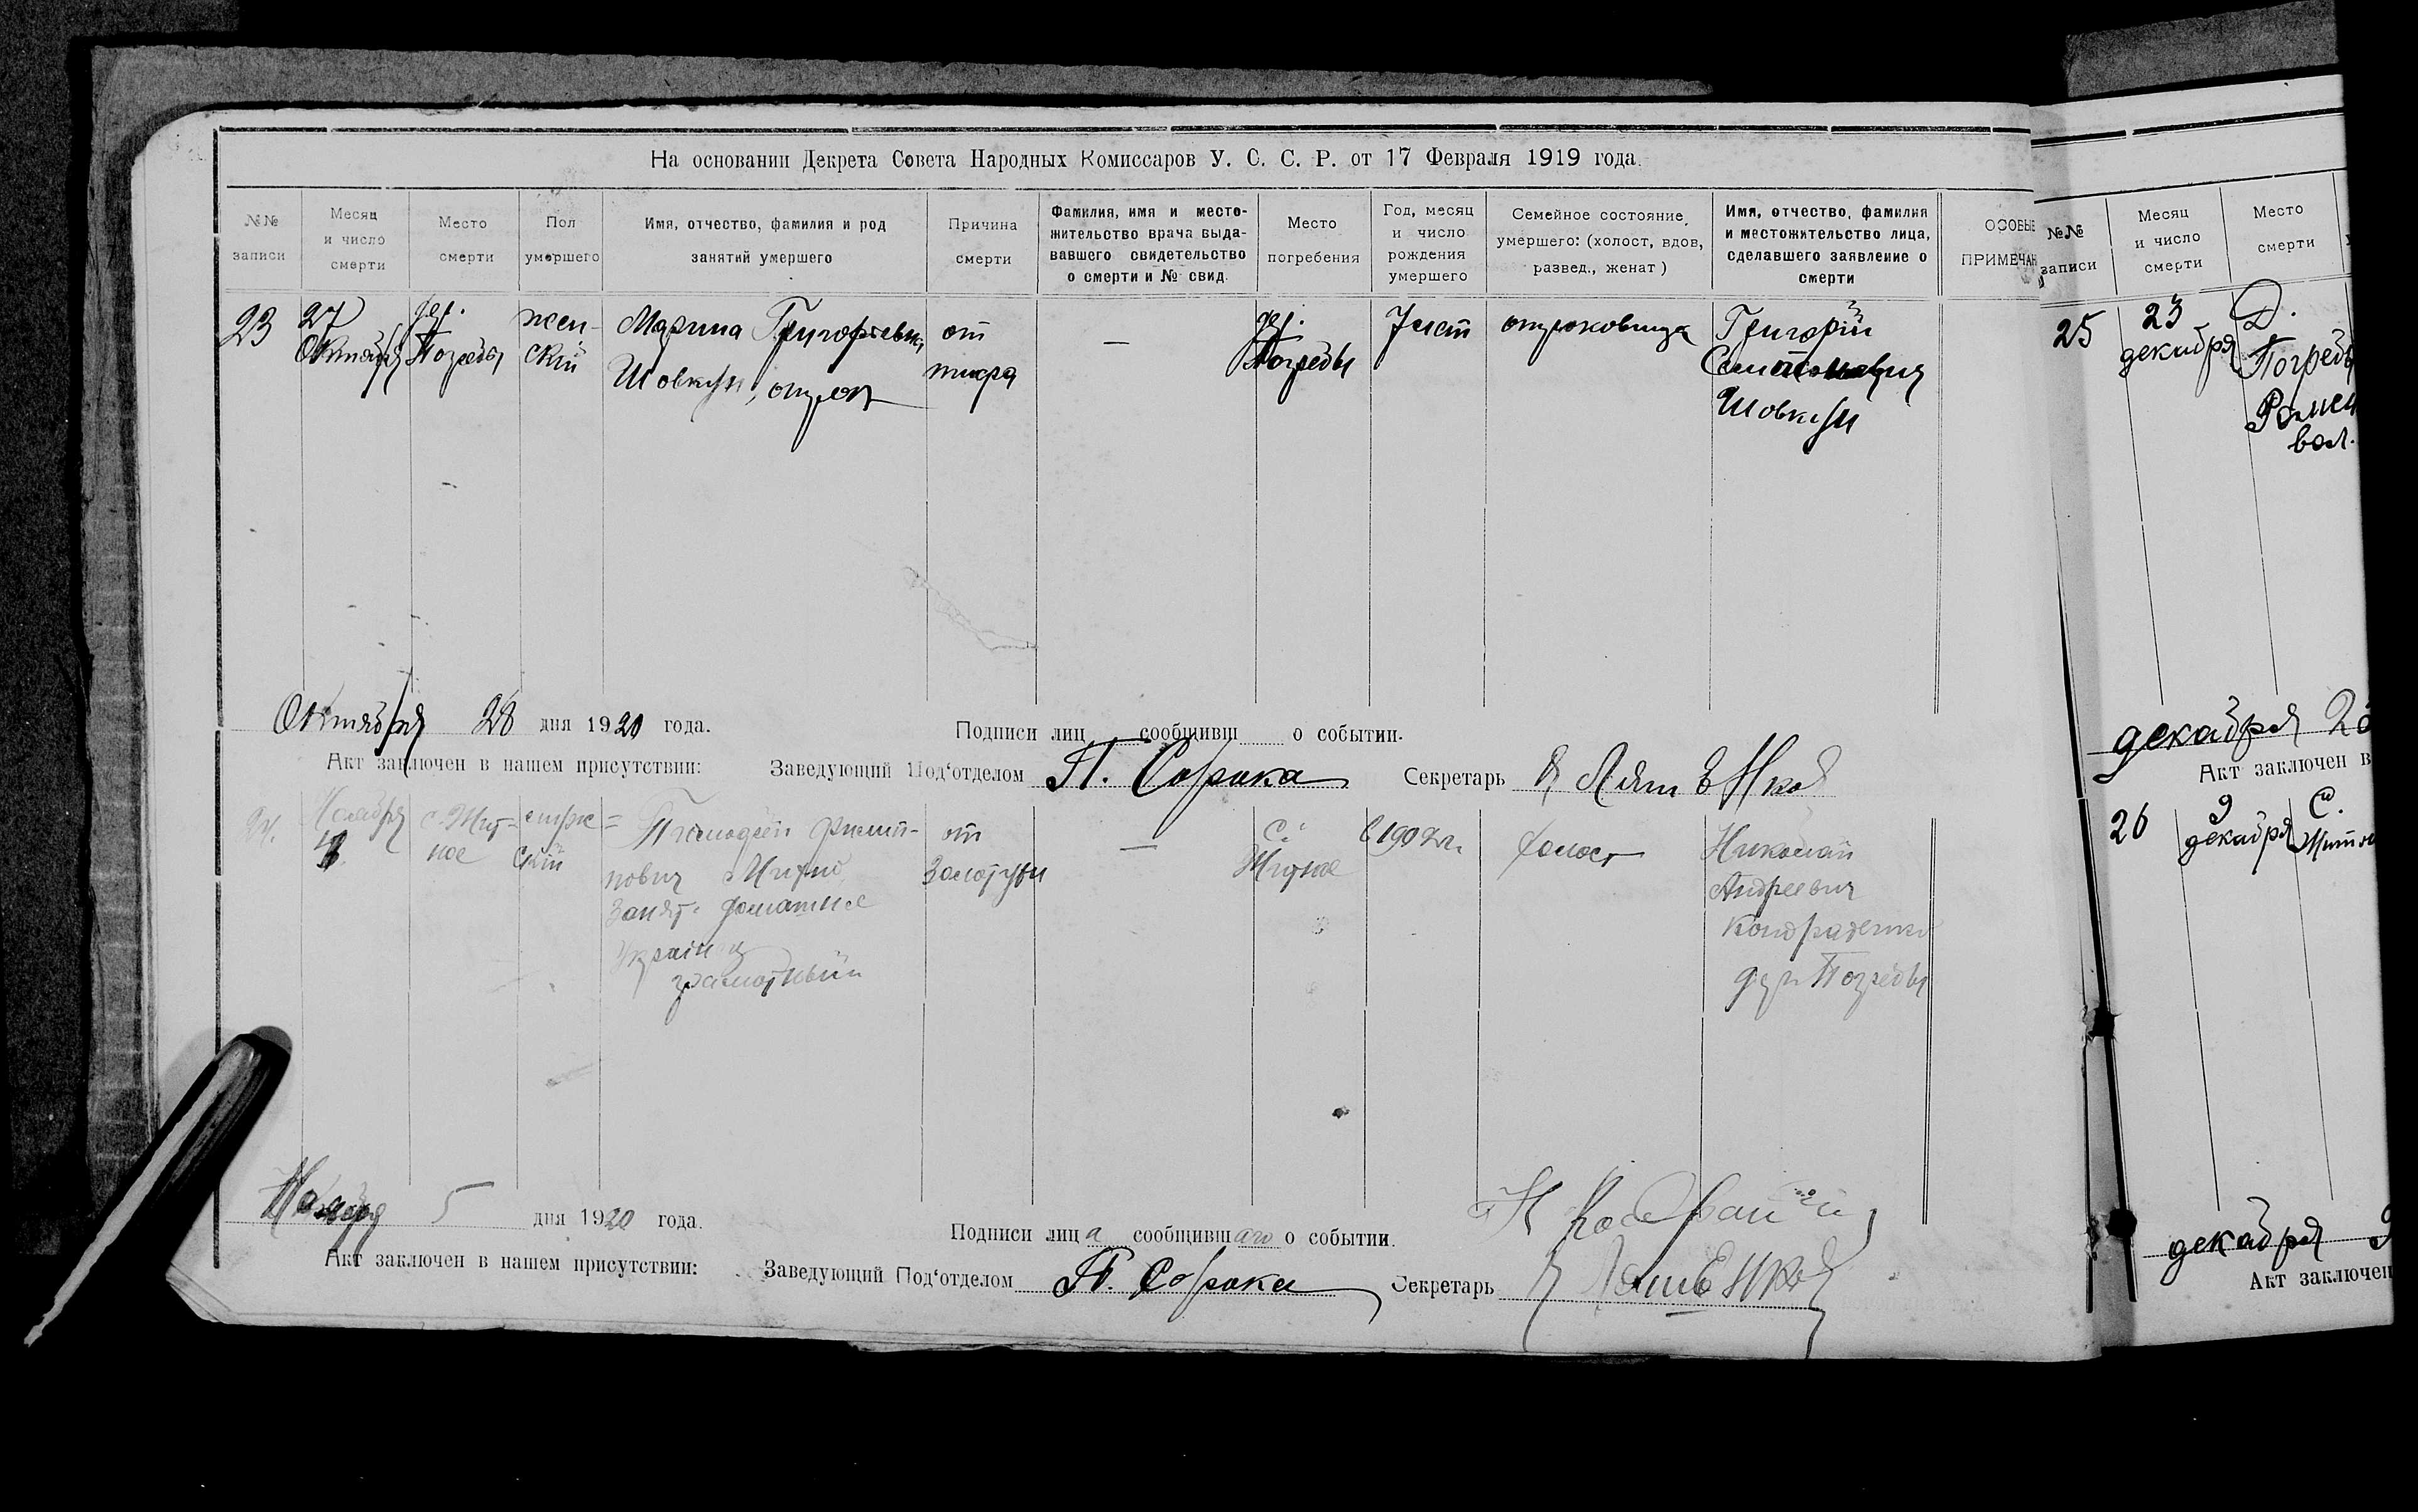 На основании Декрета Совета Народных Комиссаров У. С. С. Р. от 17 Февраля 1919 года.
№№ записи
Месяц и число смерти
Место смерти
Пол умершего
Имя, отчество, фамилия и род занятий умершего
Причина смерти
Фамилия, имя и место-
жительство врача выда-
вавшего свидетельство
о смерти и № свид.
Место погребения
Год, месяц и число рождения умершего
Семейное состояние умершего: (холост, вдов, развед., женат)
Имя, отчество, фамилия
и местожительство лица,
сделавшего заявление о
смерти
ОСОБЫЕ
ПРИМЕЧАН
23
27
Октября
дер.
Погребы
жен-
ский
Григорьевн
от
тифа
—
дер.
Погребы
7 лет
Григорий
Октября 28 дня 1920 года.
Подписи лиц сообщивш о событии.
Акт заключен в нашем присутствии:
Заведующий Под‘отделом П. Сорока
Секретарь
24.
Ноября
с. Жит-
ное
ский
Филип-
пович
Занят. домашнее
Украинец
грамотный
от
—
с.
Житное
в 1902 г.
холост
Николай
Андреевич
Кондратенко
дер. Погребы
Ноября 5 дня 1920 года.
Подписи лица сообщившаго о событии.
Акт заключен в нашем присутствии:
Заведующий Под‘отделом П. Сорока
Секретарь
№№ записи
Месяц и число смерти
Место смерти
25
23
декабря
Д.
Погреб
Ромен
вол.
декабря
Акт заключен в
26
9
декабря
С.
Житн
декабря 9
Акт заключен